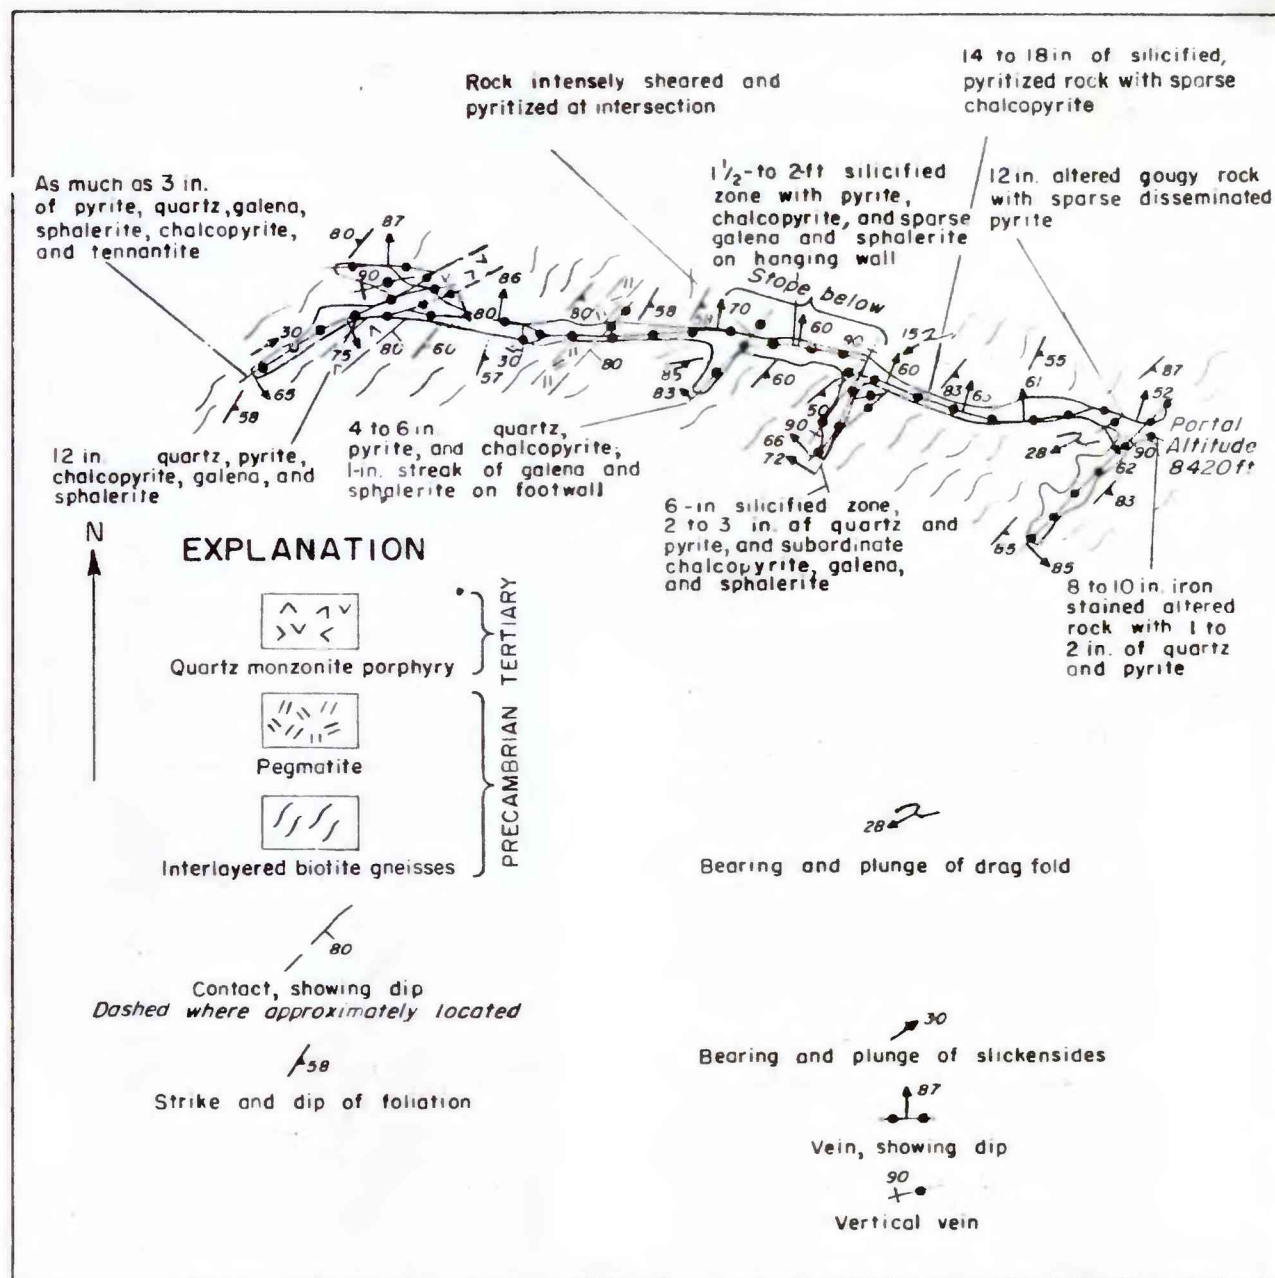 14 to 18 in of silicified,
pyritized rock with sparse
chalcopyrite
Rock intensely sheared and
pyritized at intersection
1½- to 2-ft silicified
zone with pyrite,
chalcopyrite, and sparse
galena and sphalerite
on hanging wall
12 in. altered gougy rock
with sparse disseminated
pyrite
As much as 3 in.
of pyrite, quartz, galena,
sphalerite, chalcopyrite,
and tennantite
Stope below
80
87
90
86
80
80
58
70
60
90
15
60
55
87
30
75
80
60
57
30
80
85
83
60
50
90
66
72
83
61
52
28
90
62
83
65
58
65
85
Portal
Altitude
8420 ft
12 in. quartz, pyrite,
chalcopyrite, galena, and
sphalerite
4 to 6 in. quartz,
pyrite, and chalcopyrite;
1-in. streak of galena and
sphalerite on footwall
6-in silicified zone,
2 to 3 in. of quartz and
pyrite, and subordinate
chalcopyrite, galena,
and sphalerite
8 to 10 in. iron
stained altered
rock with 1 to
2 in. of quartz
and pyrite
N
EXPLANATION
Quartz monzonite porphyry
TERTIARY
Pegmatite
Interlayered biotite gneisses
PRECAMBRIAN
80
Contact, showing dip
Dashed where approximately located
58
Strike and dip of foliation
28
Bearing and plunge of drag fold
30
Bearing and plunge of slickensides
87
Vein, showing dip
90
Vertical vein